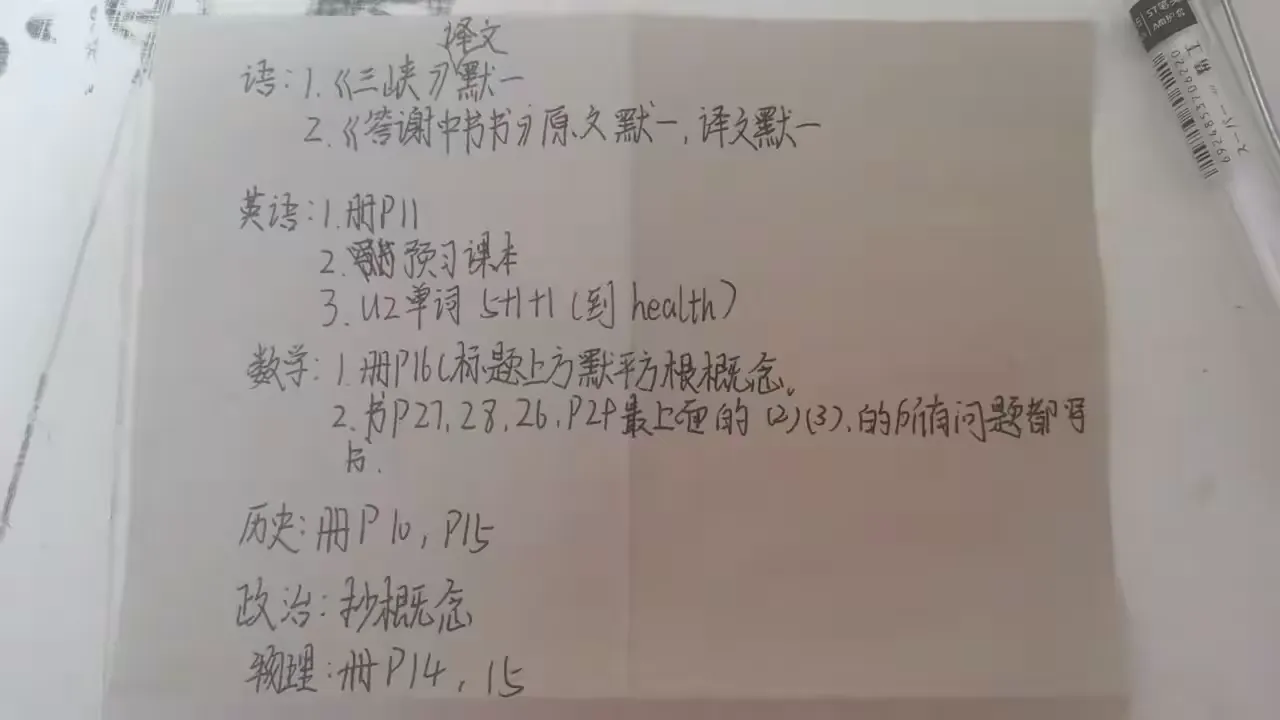 语:1.《三峡》译文默一
2.《答谢中书书》原文默一,译文默一
英语:1.册P11
2.预习课本
3.U2单词 5+1+1(到 health)
数学:1.册P16(标题上方默平方根概念。
2.书P27,28,26,P24最上面的(2)(3),的所有问题都写
历史:册P10,P15
政治:抄概念
物理:册P14,15
6924853706220